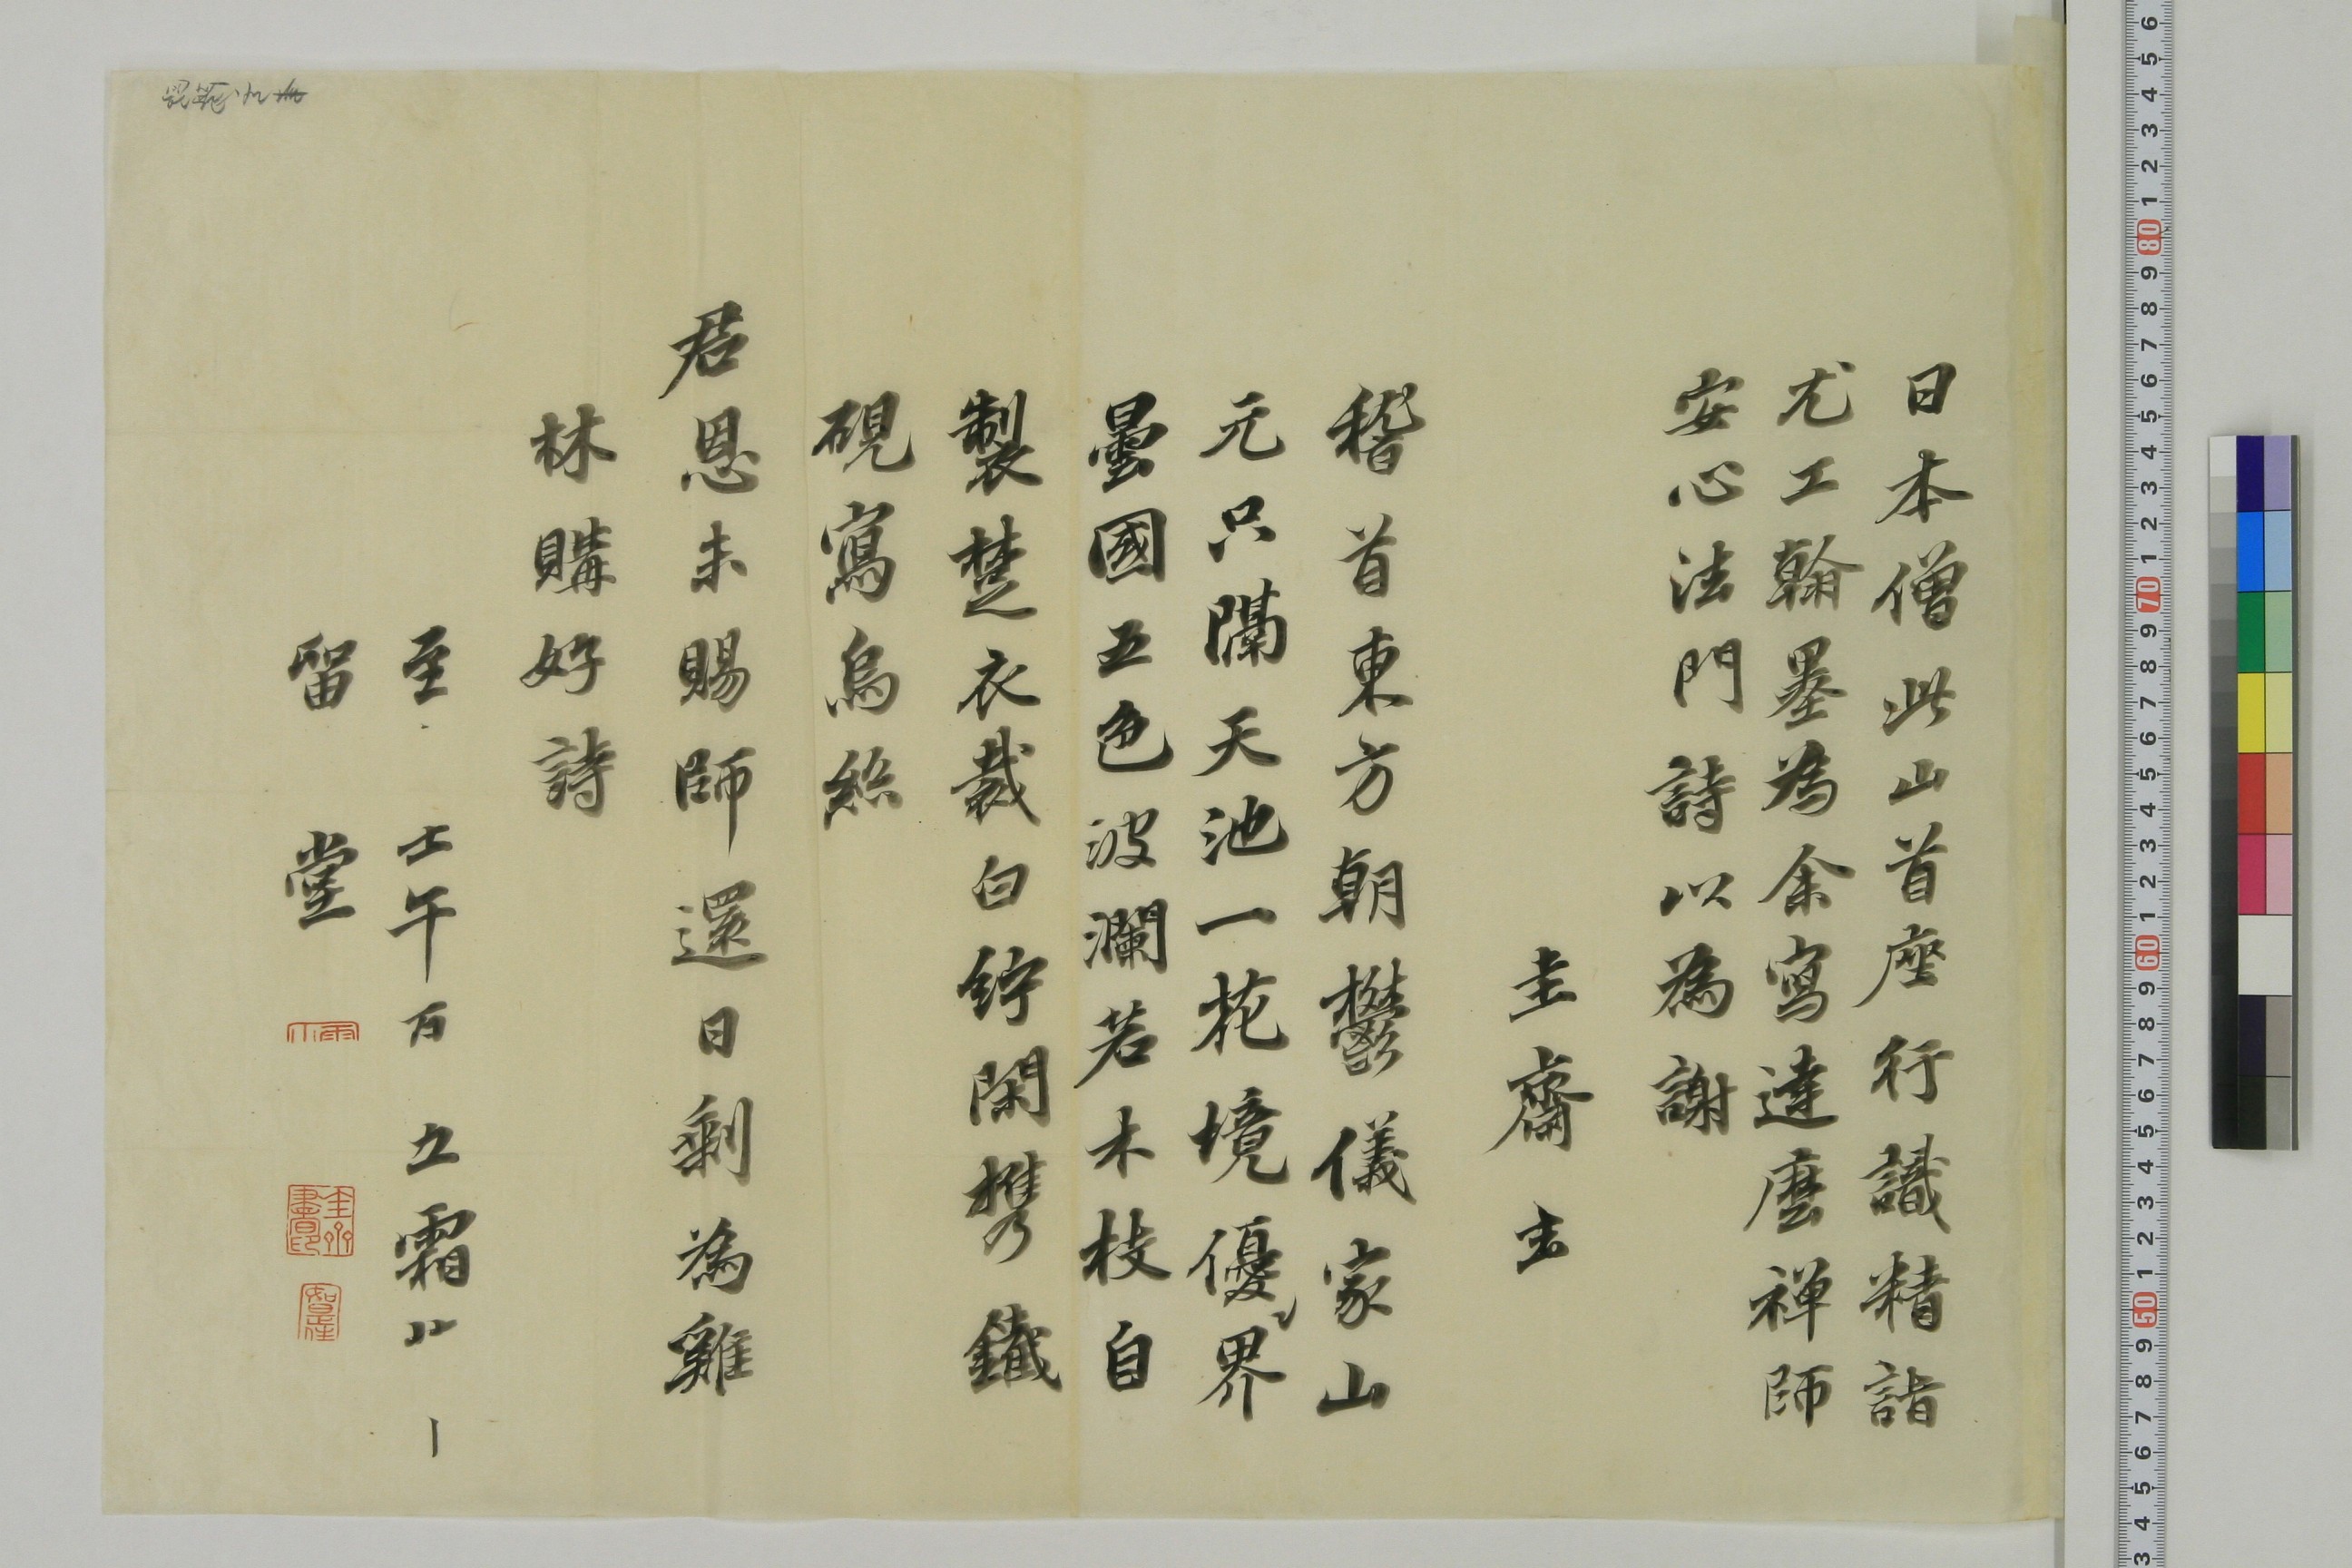 日本僧此山首座行識精詣
尤工翰墨為余寫達麼禅師
安心法門詩以為謝
圭齋玄
稽首東方朝鬱儀家山
元只隔天池一花境優界
曇國五色波瀾若木枝自
製楚衣裁白紵閑携鐵
硯寫烏絲
君恩未賜師還日剰為雞
林購好詩
至 壬午 五霜
留堂